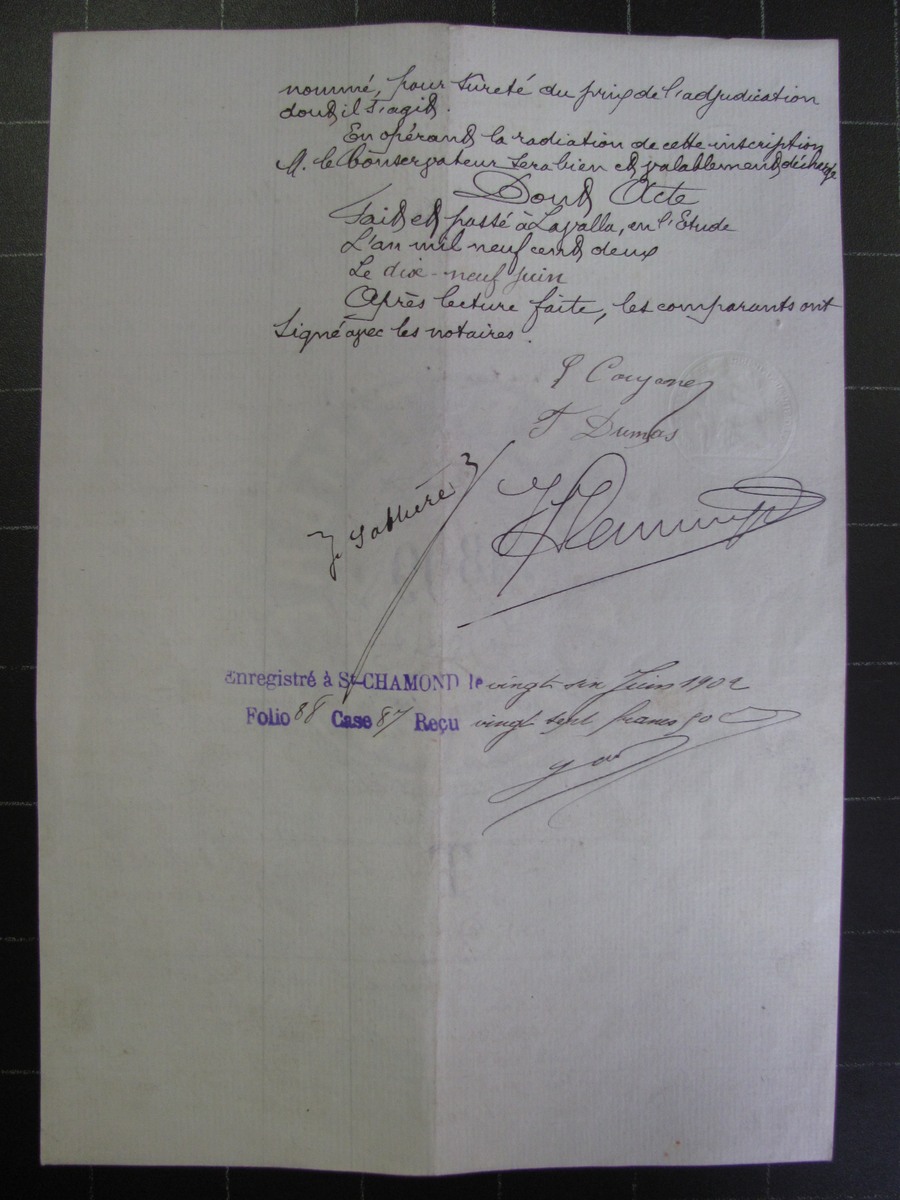 nommé, pour sûreté du prix de l'adjudication
dont il s'agit.
En opérant la radiation de cette inscription
M. le Conservateur sera bien et valablement déchargé
Dont Acte
Fait et passé à Lavalla, en l'Etude
L'an mil neuf cent deux
Le dix-neuf juin
Après lecture faite, les comparants ont
signé avec les notaires.
F Dumas
Enregistré à St-CHAMOND le vingt six Juin 1902
Folio 88 Case 87 Reçu vingt sept francs 50